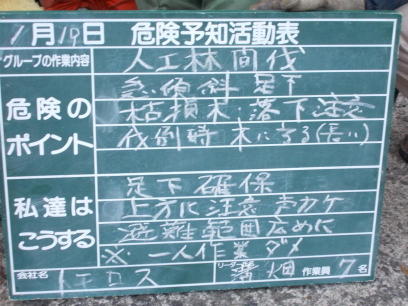 1月19日 危険予知活動表
グループの作業内容 人工林間伐
危険のポイント
急傾斜 足下
枯損木:落下注意
伐倒時 木に寄る(長い)
私達はこうする
足下確保
上方に注意 声カケ
避難範囲広めに
※ 一人作業ダメ
会社名 トエロス リーダー名 溝畑 作業員 7名